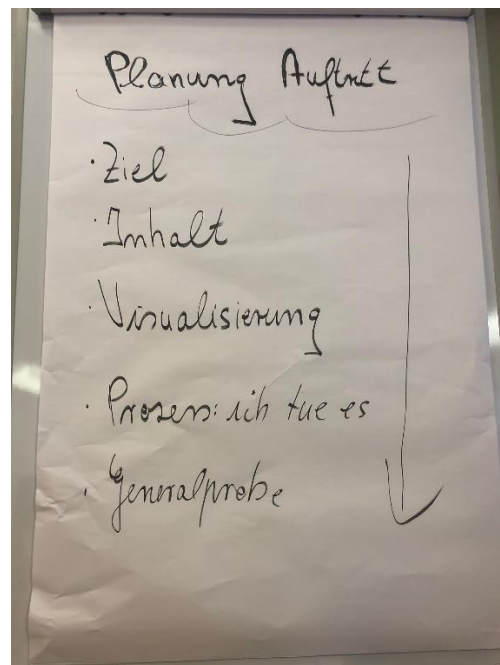 Planung Auftritt
· Ziel
· Inhalt
· Visualisierung
· Prozess: ich tue es
· Generalprobe